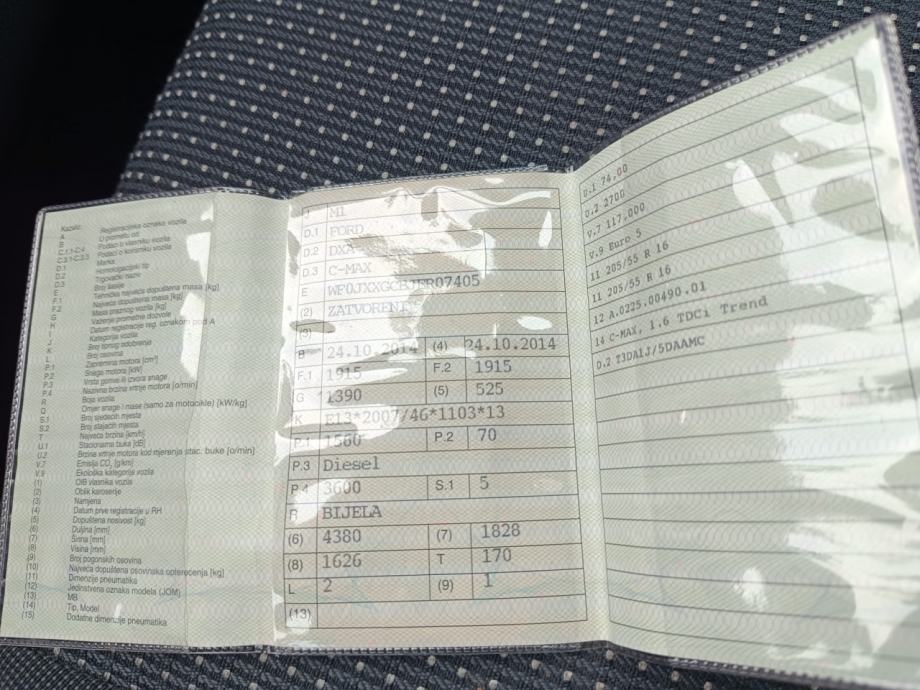 Kazalo:
A Registracijska oznaka vozila
B U prometu od
C.1.1-C.4 Podaci o vlasniku vozila
C.3.1-C.3.3 Podaci o korisniku vozila
D.1 Marka
D.2 Homologacijski tip
D.3 Trgovački naziv
E Broj šasije
F.1 Tehnička najveća dopuštena masa [kg]
F.2 Najveća dopuštena masa [kg]
G Masa praznog vozila [kg]
H Važenje prometne dozvole
I Datum registracije reg. oznakom pod A
J Kategorija vozila
K Broj tipnog odobrenja
L Broj osovina
P.1 Zapremina motora [cm³]
P.2 Snaga motora [kW]
P.3 Vrsta goriva ili izvora snage
P.4 Nazivna brzina vrtnje motora [o/min]
R Boja vozila
Q Omjer snage i mase (samo za motocikle) [kW/kg]
S.1 Broj sjedećih mjesta
S.2 Broj stajaćih mjesta
T Najveća brzina [km/h]
U.1 Stacionarna buka [dB]
U.2 Brzina vrtnje motora kod mjerenja stac. buke [o/min]
V.7 Emisija CO₂ [g/km]
V.9 Ekološka kategorija vozila
(1) OIB vlasnika vozila
(2) Oblik karoserije
(3) Namjena
(4) Datum prve registracije u RH
(5) Dopuštena nosivost [kg]
(6) Duljina [mm]
(7) Širina [mm]
(8) Visina [mm]
(9) Broj pogonskih osovina
(10) Najveća dopuštena osovinska opterećenja [kg]
(11) Dimenzije pneumatika
(12) Jedinstvena oznaka modela (JOM)
(13) MB
(14) Tip, Model
(15) Dodatne dimenzije pneumatika
J M1
D.1 FORD
D.2 DXA
D.3 C-MAX
E WF0JXXGCBJER07405
(2) ZATVORENI
(3)
B 24.10.2014 (4) 24.10.2014
F.1 1915 F.2 1915
G 1390 (5) 525
K E13*2007/46*1103*13
P.1 1560 P.2 70
P.3 Diesel
P.4 3600 S.1 5
R BIJELA
(6) 4380 (7) 1828
(8) 1626 T 170
L 2 (9) 1
(13)
U.1 74,00
U.2 2700
V.7 117,000
V.9 Euro 5
11 205/55 R 16
11 205/55 R 16
12 A.0225.00490.01
14 C-MAX, 1.6 TDCi Trend
D.2 T3DA1J/5DAAMC